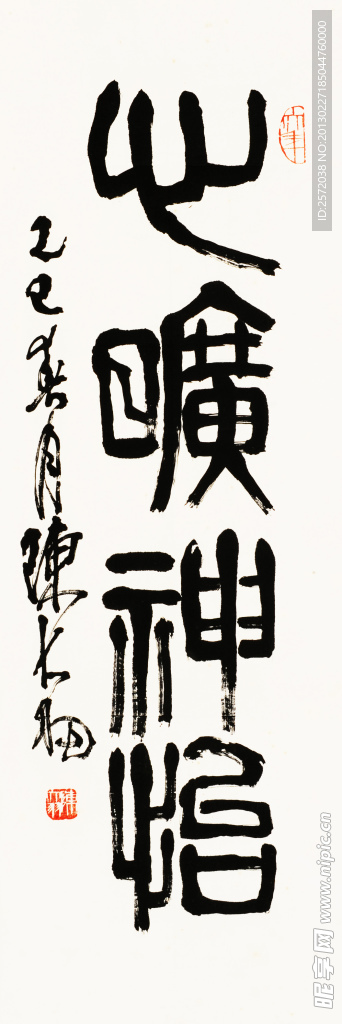 心曠神怡
乙巳春月陳大羽
ID:2572038 NO:20130227185044760000
昵享网 www.nipic.cn